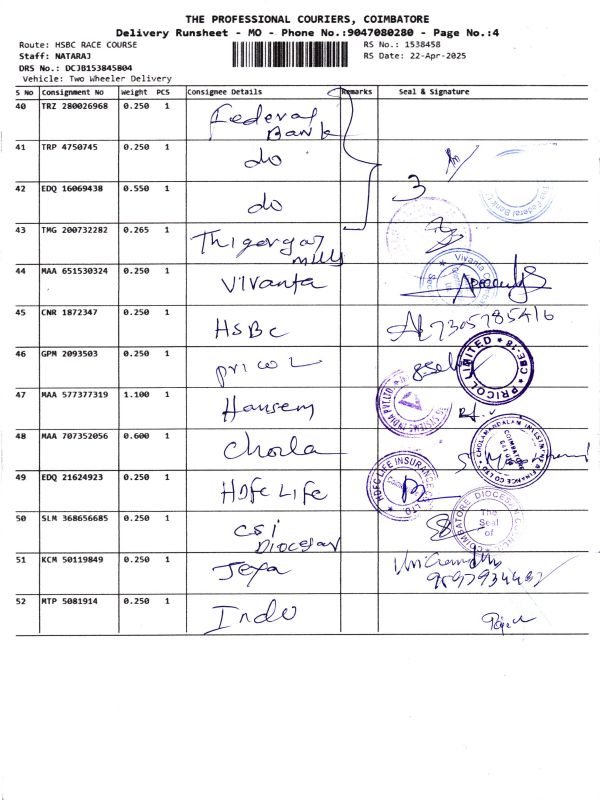 THE PROFESSIONAL COURIERS, COIMBATORE
Delivery Runsheet - MO - Phone No.:9047080280 - Page No.:4
Route: HSBC RACE COURSE RS No.: 1538458
Staff: NATARAJ RS Date: 22-Apr-2025
DRS No.: DCJB153845804
Vehicle: Two Wheeler Delivery
S No Consignment No Weight PCS Consignee Details Remarks Seal & Signature
40 TRZ 280026968 0.250 1 Federal
Bank
41 TRP 4750745 0.250 1 do
42 EDQ 16069438 0.550 1 do 3 The Federal Bank
43 TMG 200732282 0.265 1
mills
44 MAA 651530324 0.250 1 Vivanta Vivanta Coimbatore
45 CNR 1872347 0.250 1 HSBC 7305785416
46 GPM 2093503 0.250 1 pricol PRICOL LIMITED * CBE-18 *
47 MAA 577377319 1.100 1 SYSTEMS INDIA PVT.LTD
48 MAA 707352056 0.600 1 Chola CHOLAMANDALAM INVESTMENT & FINANCE CO LTD
COIMBATORE
49 EDQ 21624923 0.250 1 HDFC LIFE HDFC LIFE INSURANCE CO LTD
50 SLM 368656685 0.250 1 CSI
Diocesan COIMBATORE DIOCESAN COUNCIL
The
Seal
of
51 KCM 50119849 0.250 1 Jeya
52 MTP 5081914 0.250 1 Indo